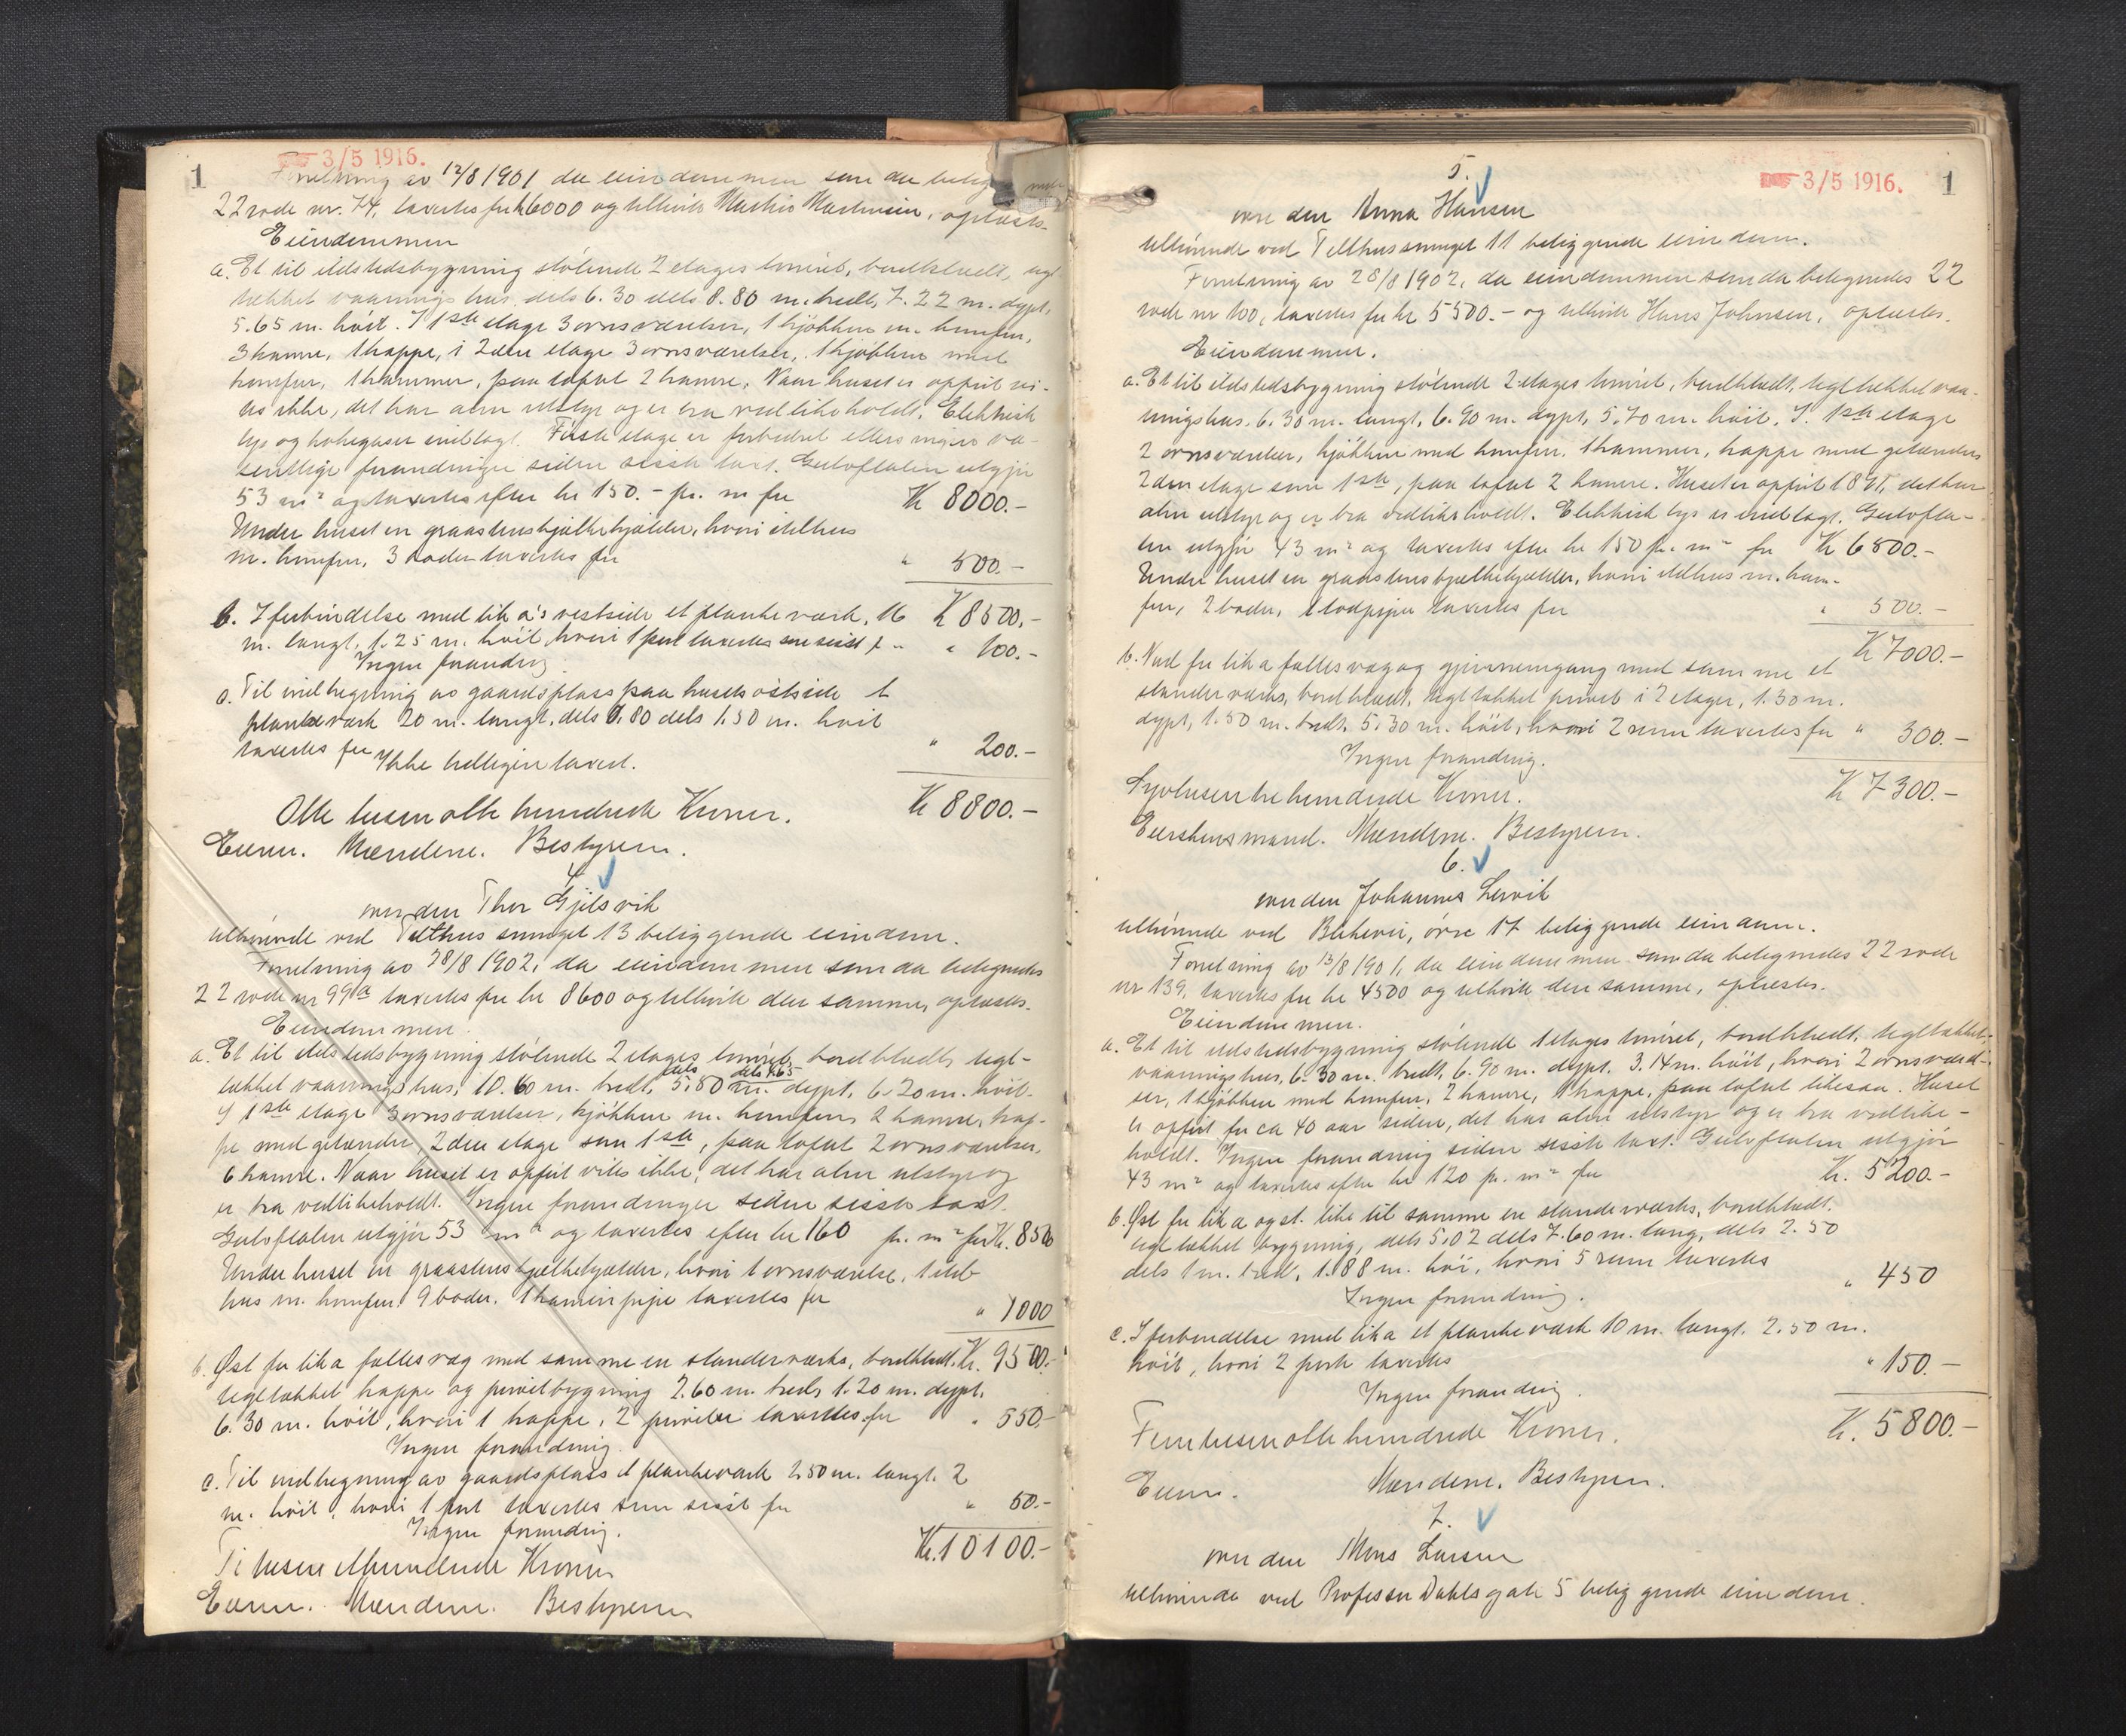 1
3/5 1916.
Forretning av 12/8 1901 da eiendommen som da beteg
22 rode nr. 74, taxertes for kr 6000 og tilhørte oplæstes.
Eiendommen
a. Et til ildstedsbygning stötende 2 etages tömret, bordklædt, tegl
tækket vaaningshus, dels 6.30 dels 8.80 m. bredt, 7.22 m. dypt,
5.65 m. höit. I 1ste etage 3 ovnsværelser, 1 kjökken m. komfur,
3 kamre, 1 trappe, i 2den etage 3 ovnsværelser, 1 kjökken med
komfur, 1 kammer, paa loftet 2 kamre. Naar huset er opfört vi-
tes ikke, det har alm utstyr og er bra vedlikeholdt. Elektrisk
lys og kokegaser indlagt. Förste etage er forbedret ellers ingen væ-
sentlige forandringer siden sisste taxt. Gulvflaten utgjör
53 m² og taxertes efter kr 150.- pr. m for Kr 8000.-
Under huset en graastensbjælkekjælder, hvori ildhus
m. komfur, 3 boder taxertes for " 500.-
b. I forbindelse med lit a's vestside et plankeværk, 16 Kr 8500.-
m. langt, 1.25 m. höit, hvori 1 port taxertes som sisst f " " 100.-
Ingen forandring
c. Til indhegning av gaardsplass paa husets östside et
plankeværk 20 m. langt, dels 0.80 dels 1.50 m. höit
taxertes for " 200.-
Ikke tidligere taxert.
Otte tusen otte hundrede Kroner. Kr 8800.-
Eieren. Mændene. Bestyreren.
4.
over den Thor Gjelsvik
tilhörende ved Telthussmuget 13 beliggende eiendom.
Forretning av 28/8 1902, da eiendommen som da betegnedes
22 rode nr 99a taxertes for kr 8600 og tilhörte den samme, oplæstes.
Eiendommen.
a. Et til ildstedsbygning stötende 2 etages tömret, bordklædt, tegl-
tækket vaaningshus, 10.60 m. bredt, dels 5.80 m. dels 7.65 dypt, 6.20 m. höit.
I 1ste etage 3 ovnsværelser, kjökken m. komfur, 2 kamre, trap-
pe med gelænder, 2den etage som 1ste, paa loftet 2 ovnsværelser,
6 kamre. Naar huset er opfört vites ikke, det har alm utstyr og
er bra vedlikeholdt. Ingen forandringer siden sisste taxt.
Gulvflaten utgjör 53 m² og taxertes efter kr 160 pr. m² for Kr. 8500
Under huset en graastensbjælkekjælder, hvori 1 ovnsværelse, 1 ild-
hus m. komfur, 9 boder, 1 kaminpipe taxertes for " 1000
b. Öst for lit a fælles væg med samme en standerværks, bordklædt, Kr. 9500.-
tegltækket trappe og privetbygning 2.60 m. bredt, 1.20 m. dypt,
6.30 m. höit, hvori 1 trappe, 2 priveter taxertes for " 550.-
Ingen forandring.
c. Til indhegning av gaardsplass et plankeværk 2.50 m. langt. 2
m. höit, hvori 1 port taxertes som sisst for " 50.-
Ingen forandring.
Ti tusen ethundrede Kroner Kr. 10100.-
Eieren. Mændene. Bestyreren
3/5 1916. 1
5.
over den Anna Hansen
tilhörende ved Telthussmuget 11 beliggende eiendom.
Forretning av 28/8 1902, da eiendommen som da betegnedes 22
rode nr 100, taxertes for kr 5500.- og tilhörte Hans Johnsen, oplæstes.
Eiendommen.
a. Et til ildstedsbygning stötende 2 etages tömret, bordklædt, tegltækket vaa-
ningshus, 6.30 m. langt, 6.90 m. dypt, 5.70 m. höit. I 1ste etage
2 ovnsværelser, kjökken med komfur, 1 kammer, trappe med gelænder,
2den etage som 1ste, paa loftet 2 kamre. Huset er opfört det har
alm utstyr og er bra vedlikeholdt. Elektrisk lys er indlagt. Gulvfla-
ten utgjör 43 m² og taxertes efter kr 150 pr. m² for Kr 6500.-
Under huset en graastensbjælkekjælder, hvori ildhus m. kom-
fur, 2 boder, taxertes for " 500.-
Kr 7000.-
b. Nord for lit a fælles væg og gjennemgang med samme et
standerværks, bordklædt, tegltækket privet i 2 etager, 1.30 m.
dypt, 1.50 m. bredt, 5.30 m. höit, hvori 2 rum taxertes for " 300.-
Ingen forandring.
Syvtusentrehundrede Kroner. Kr 7300.-
Eierskens mand. Mændene. Bestyreren.
6.
over den Johannes Lervik
tilhörende ved Blekeveien, övre 17 beliggende eiendom.
Forretning av 13/8 1901, da eiendommen som da betegnedes 22 rode
nr 139, taxertes for kr 4500 og tilhörte den samme, oplæstes.
Eiendommen.
a. Et til ildstedsbygning stötende 1 etages tömret, bordklædt, tegltækket
vaaningshus, 6.30 m. bredt, 6.90 m. dypt, 3.14 m. höit, hvori 2 ovnsværel-
ser, 1 kjökken med komfur, 2 kamre, 1 trappe, paa loftet likesaa. Huset
er opfört for ca 40 aar siden, det har alm utstyr og er bra vedlike-
holdt. Ingen forandring siden sisste taxt. Gulvflaten utgjör
43 m² og taxertes efter kr 120 pr. m² for Kr. 5200.-
b. Öst for lit a og st. like til samme en standerværks, bordklædt,
tegltækket bygning, dels 5.02 dels 7.60 m. lang, dels 2.50
dels 1 m. bred, 1.88 m. höi, hvori 5 rum taxertes " 450
Ingen forandring.
c. I forbindelse med lit a et plankeværk 10 m. langt, 2.50 m.
höit, hvori 2 porte taxertes " 150.-
Ingen forandring.
Femtusenottehundrede Kroner. Kr. 5800.-
Eieren. Mændene. Bestyreren.
7.
over den Mons Larsen
tilhörende ved Professor Dahls gate 5 beliggende eiendom.